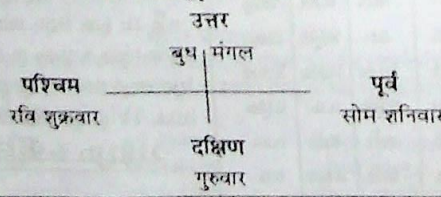 उत्तर
बुध मंगल
पश्चिम
पूर्व
रवि शुक्रवार
सोम शनिवार
दक्षिण
गुरुवार